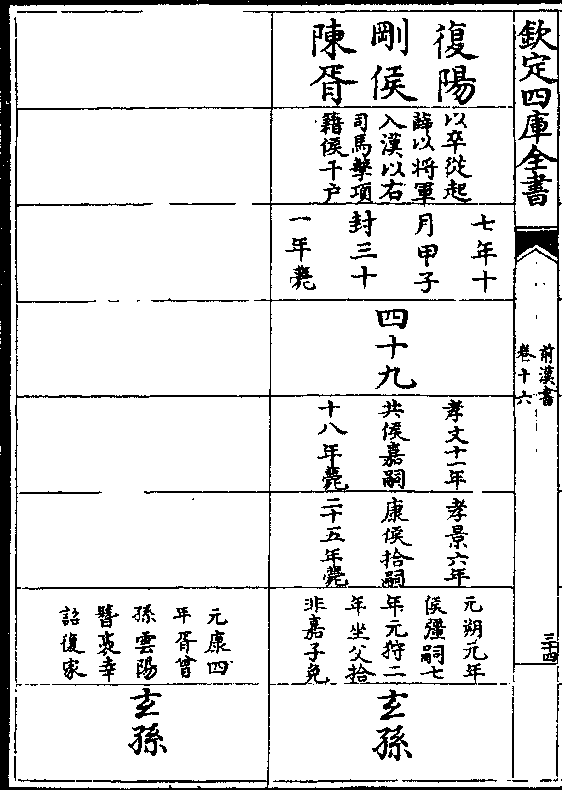 欽定四庫全書
前漢書
卷十六
三十四
復陽
剛侯
陳胥
以卒從起
薛以將軍
入漢以右
司馬擊項
籍侯千户
七年十
月甲子
封三十
一年薨
四十九
孝文十一年
共侯嘉嗣
十八年薨
孝景六年
康侯拾嗣
二十五年薨
元朔元年
侯彊嗣七
年元狩二
年坐父拾
非嘉子免
玄孫
元康四
年胥曾
孫雲陽
簪褭幸
詔復家
玄孫